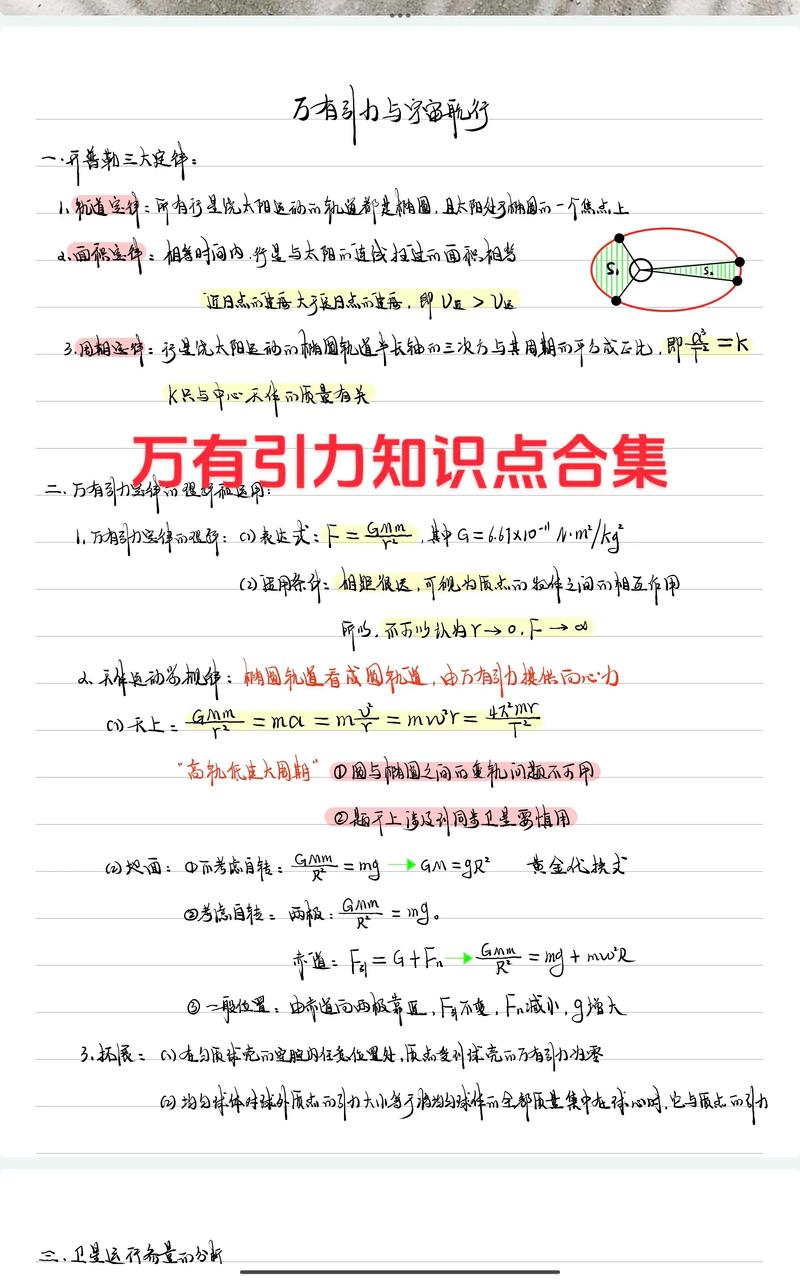 万有引力与宇宙航行
一.开普勒三大定律：
1.轨道定律：所有行星绕太阳运动的轨道都是椭圆，且太阳处于椭圆的一个焦点上
2.面积定律：相等时间内.行星与太阳的连线扫过的面积相等
S₁ S₂
近日点的速度大于远日点的速度，即 V近 > V远
3.周期定律：行星绕太阳运动的椭圆轨道半长轴的三次方与其周期的平方成正比，即 a³/T² = K
K只与中心天体的质量有关
万有引力知识点合集
二.万有引力定律的理解和运用：
1.万有引力定律的理解：(1)表达式：F = GMm/r²，其中 G = 6.67×10⁻¹¹ N·m²/kg²
(2)适用条件：相距很远，可视为质点的物体之间的相互作用
所以，不可以认为 r → 0，F → ∞
2.天体运动学规律：椭圆轨道看成圆轨道，由万有引力提供向心力
(1)天上：GMm/r² = ma = m v²/r = mω²r = 4π²mr/T²
"高轨低速大周期" ①圆与椭圆之间的变轨问题不可用
②题干上涉及到同步卫星要慎用
(2)地面：①不考虑自转：GMm/R² = mg → GM = gR² 黄金代换式
②考虑自转：两极：GMm/R² = mg。
赤道：F引 = G + Fn → GMm/R² = mg + mω²R
③一般位置：由赤道向两极靠近，F引不变，Fn减小，g增大
3.拓展：(1)在匀质球壳的空腔内任意位置处，质点受到球壳的万有引力为零
(2)均匀球体对球外质点的引力大小等于将均匀球体的全部质量集中在球心时，它与质点的引力
三.卫星运行参量的分析